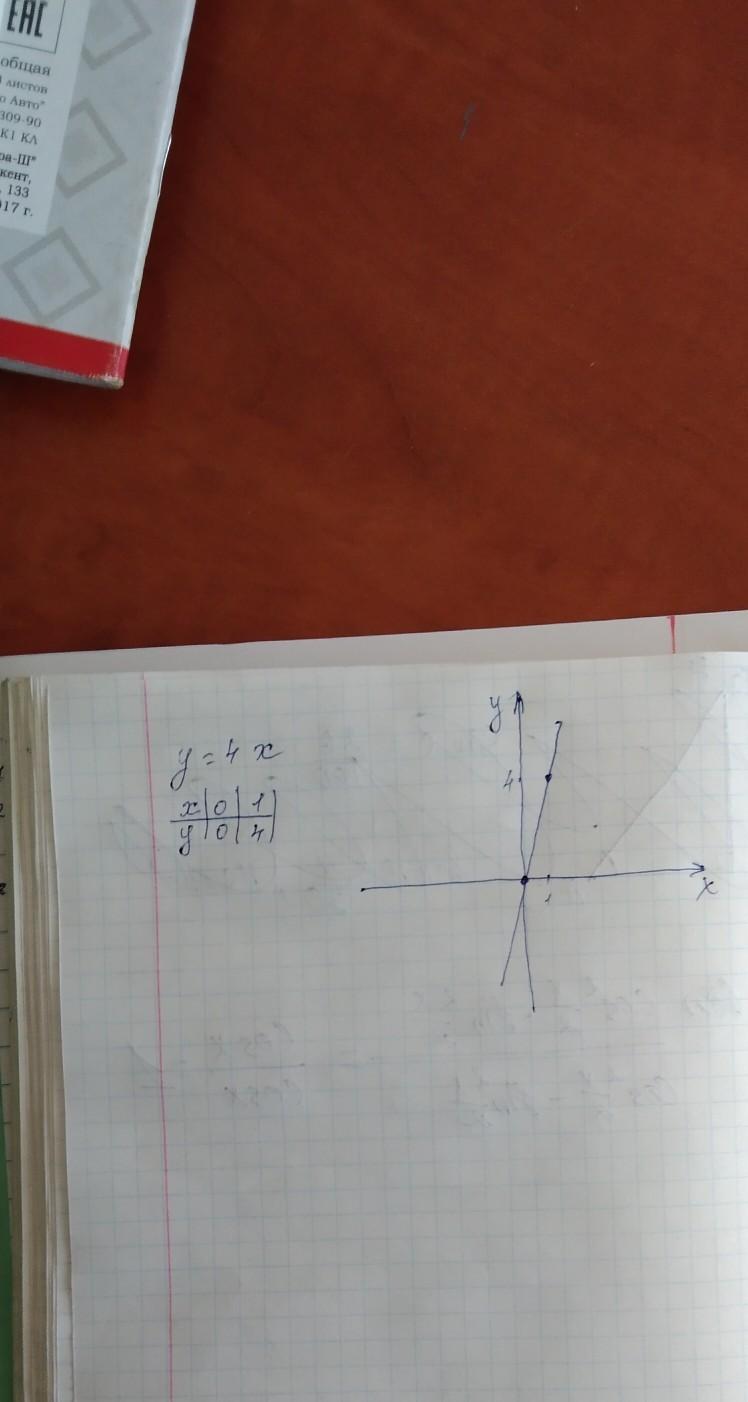 ЕАС
общая
листов
о Авто"
309-90
К1 КЛ
ра-Ш"
кент,
133
017 г.
y = 4 x
x | 0 | 1 |
y | 0 | 4 |
y
4
1
x